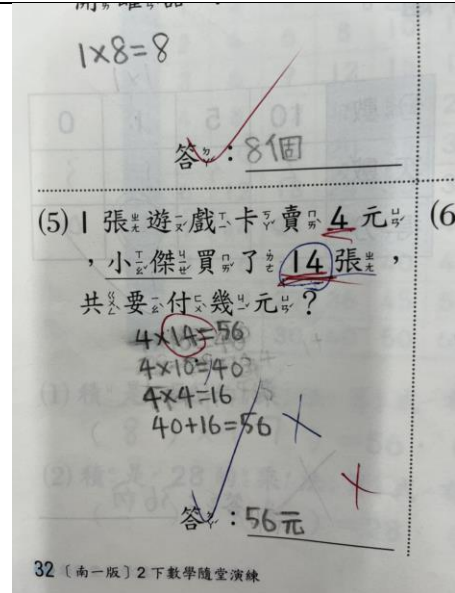 1×8=8
答：8個
(5) 1張遊戲卡賣4元
，小傑買了14張，
共要付幾元？
4×14=56
4×10=40
4×4=16
40+16=56
答：56元
(6
32〔南一版〕2下數學隨堂演練